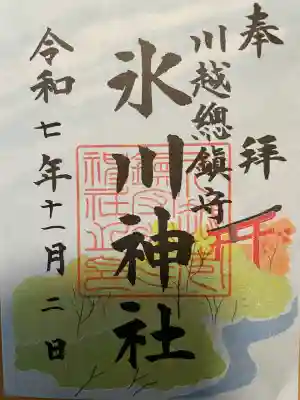 奉拝
川越總鎮守
氷川神社
令和七年十一月二日